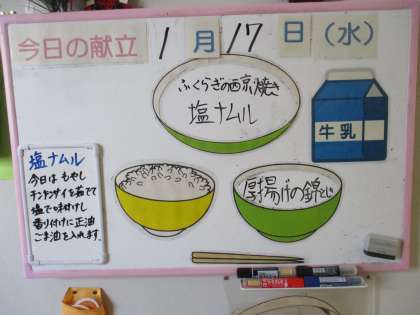 今日の献立 1月17日(水)
ふくらぎの西京焼き
塩ナムル
牛乳
厚揚げの錦とじ
塩ナムル
今日は もやし
チンゲンサイを茹でて
塩で味付けし
香り付けに正油
ごま油を入れます。